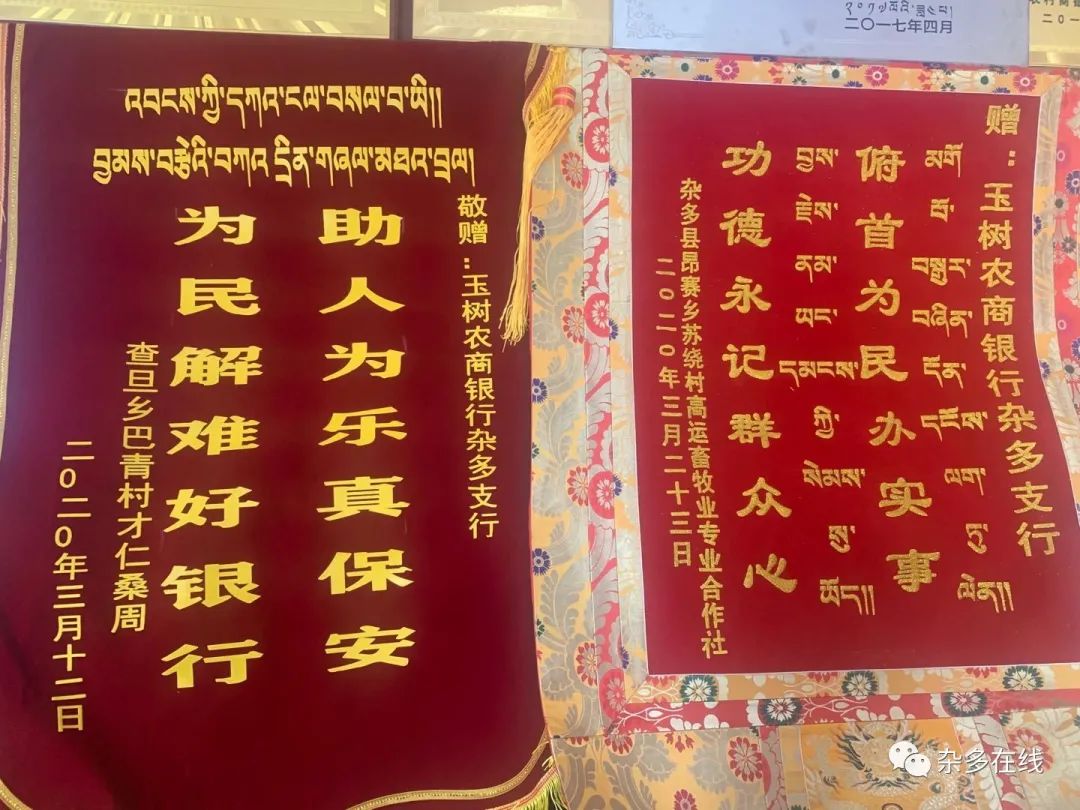 འབངས་ཀྱི་དཀའ་ངལ་བསལ་བ་ཡི།།
བྱམས་བརྩེའི་བཀའ་དྲིན་གཞལ་མཐའ་བྲལ།
敬赠：玉树农商银行杂多支行
助人为乐真保安
为民解难好银行
查旦乡巴青村才仁桑周
二〇二〇年三月十二日
二〇一七年四月
赠：玉树农商银行杂多支行
མགོ་བོ་བསྒུར་བཞིན་དོན་དངོས་ལག་ཏུ་ལེན།།
俯首为民办实事
བྱས་རྗེས་ནམ་ཡང་དམངས་ཀྱི་སེམས་སུ་ཡོད།།
功德永记群众心
杂多县昂赛乡苏绕村高运畜牧业专业合作社
二〇二〇年三月二十三日
杂多在线